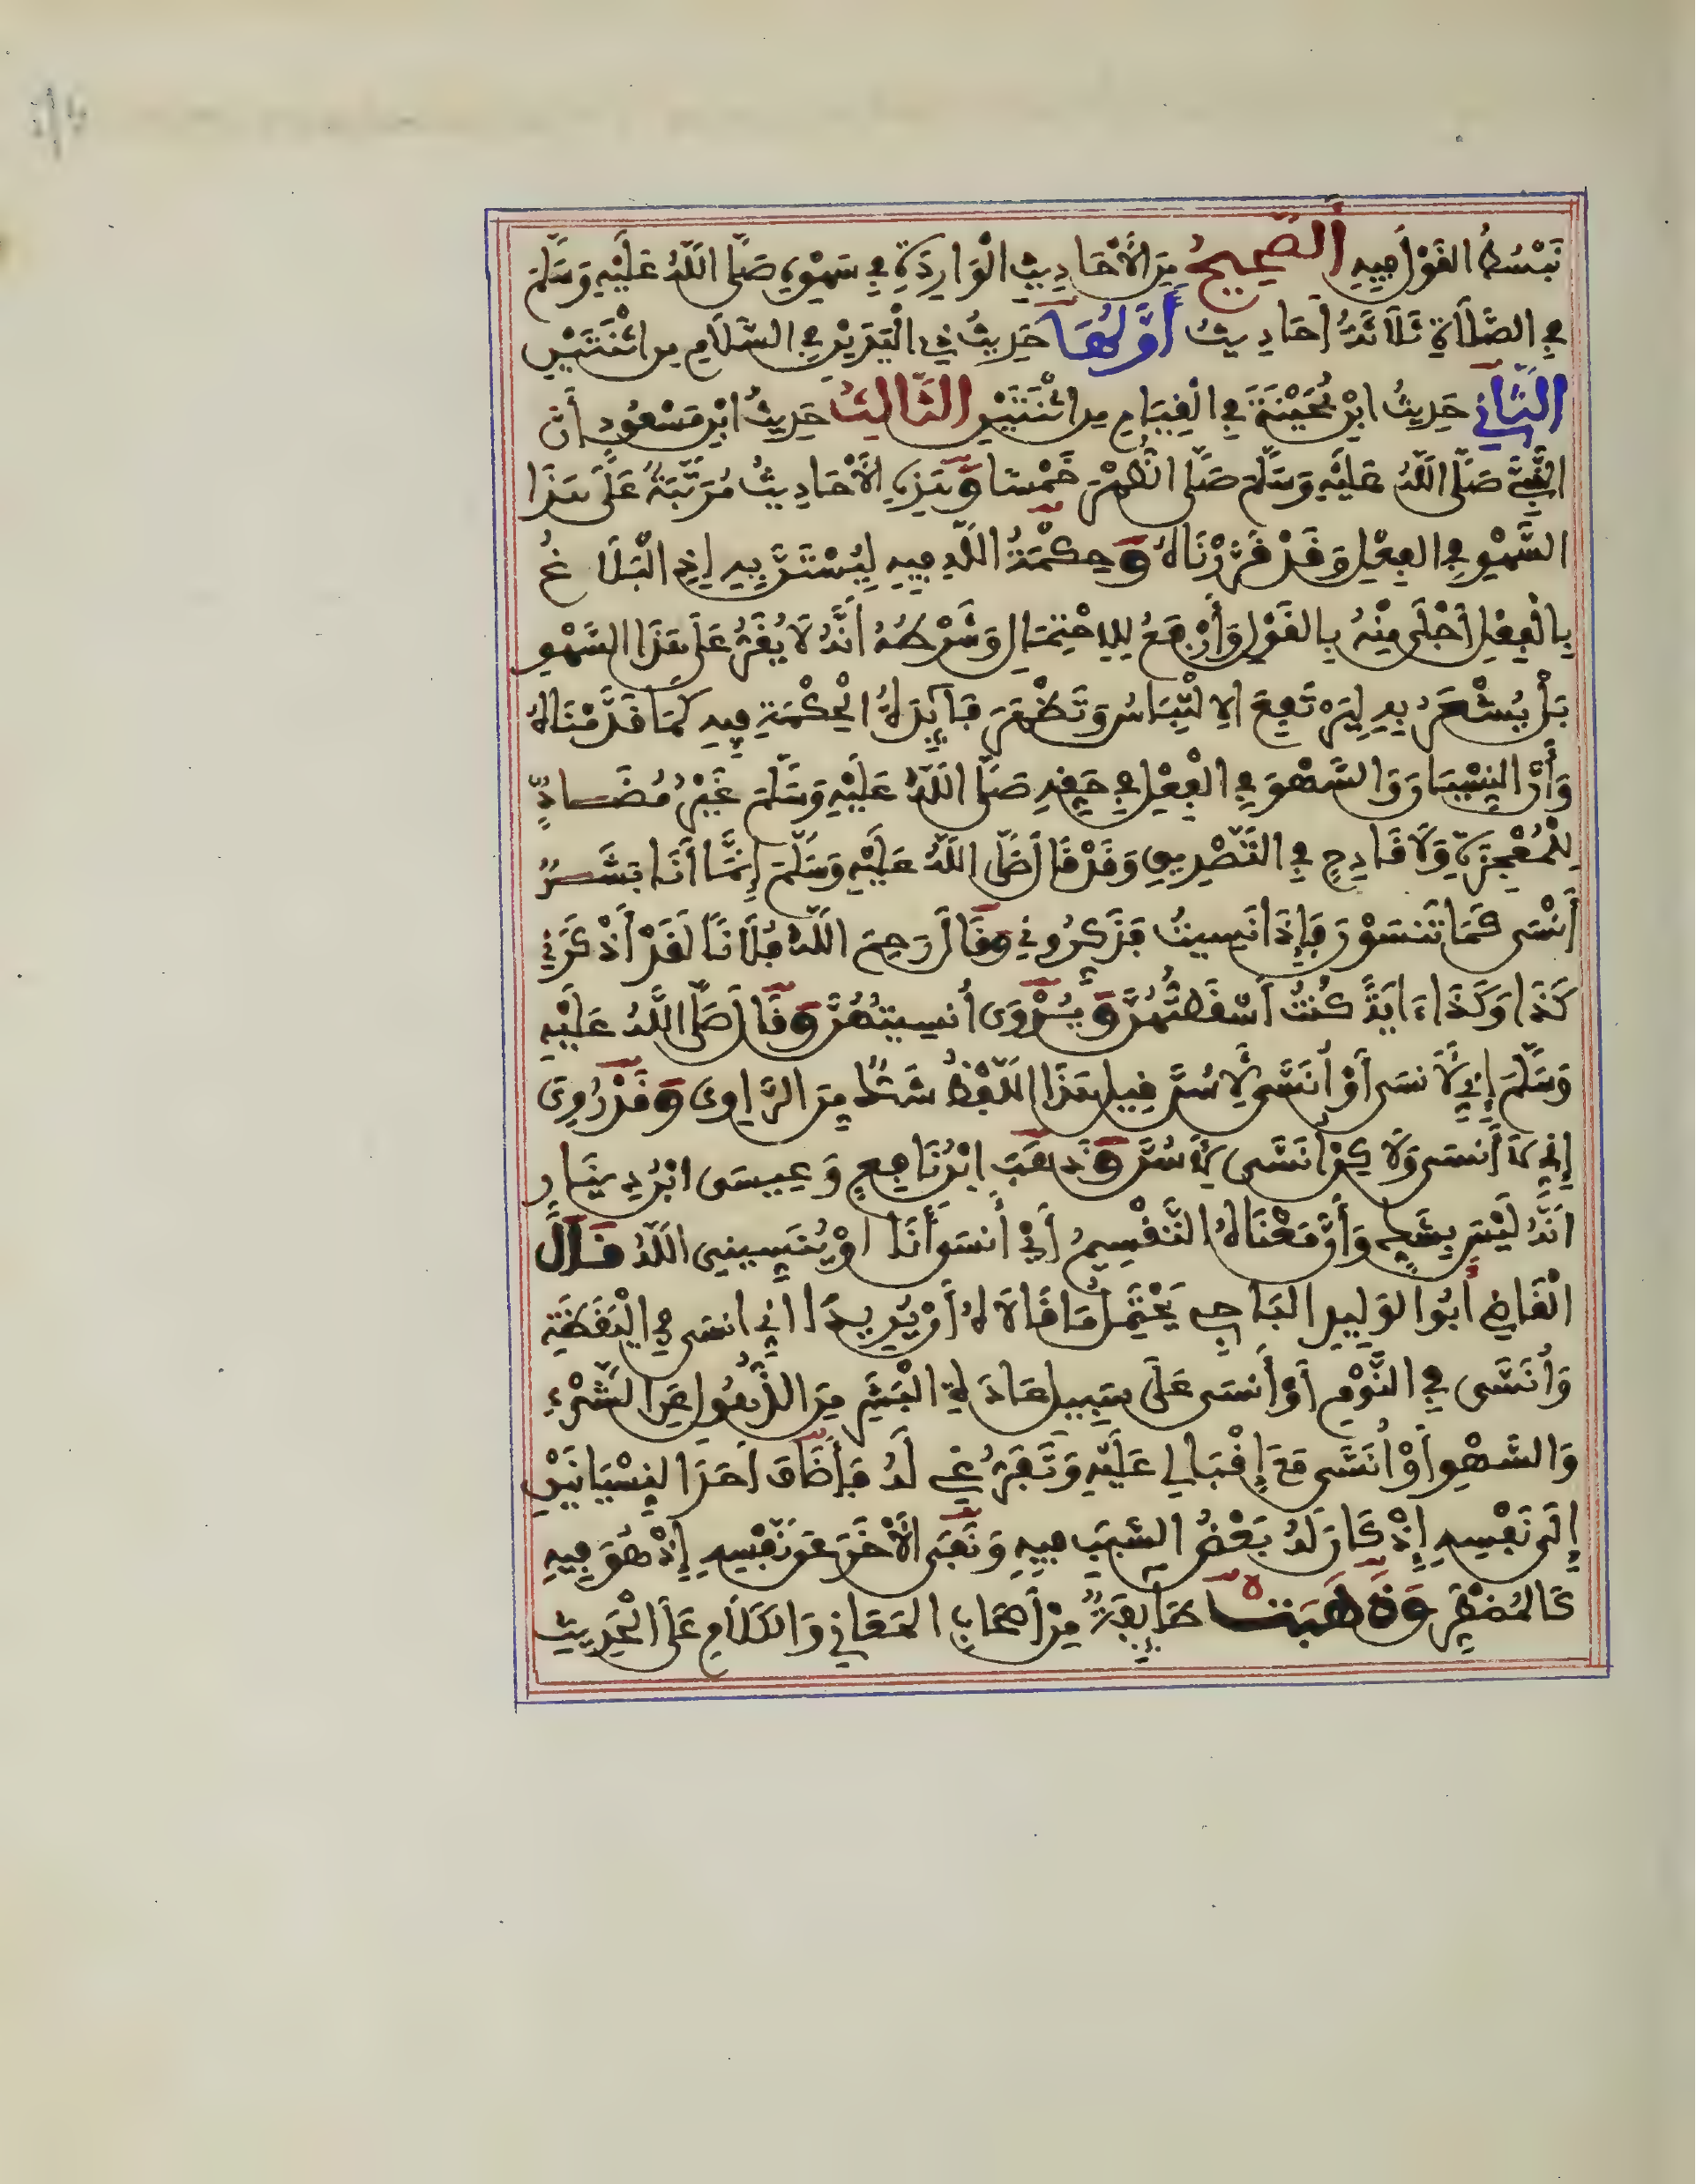 نَبْسُطُ الْقَوْلَ فِيهِ الصَّحِيحُ مِنَ الْأَحَادِيثِ الْوَارِدَةِ فِي سَهْوِهِ صَلَّى اللَّهُ عَلَيْهِ وَسَلَّمَ
فِي الصَّلَاةِ ثَلَاثَةُ أَحَادِيثَ أَوَّلُهَا حَدِيثُ ذِي الْيَدَيْنِ فِي السَّلَامِ مِنَ اثْنَتَيْنِ
الثَّانِي حَدِيثُ ابْنِ بُحَيْنَةَ فِي الْقِيَامِ مِنَ اثْنَتَيْنِ الثَّالِثُ حَدِيثُ ابْنِ مَسْعُودٍ أَنَّ
النَّبِيَّ صَلَّى اللَّهُ عَلَيْهِ وَسَلَّمَ صَلَّى الظُّهْرَ خَمْسًا وَهَذِهِ الْأَحَادِيثُ مُرَتَّبَةٌ عَلَى هَذَا
السَّهْوِ فِي الْفِعْلِ وَقَدْ قَرَّرْنَاهُ وَحِكْمَةُ اللَّهِ فِيهِ لِيُسْتَنَّ بِهِ إِذِ الْبَلَاغُ
بِالْفِعْلِ أَجْلَى مِنْهُ بِالْقَوْلِ وَأَرْفَعُ لِلِاحْتِمَالِ وَشَرْطُهُ أَنَّهُ لَا يُقَرُّ عَلَى هَذَا السَّهْوِ
بَلْ يُشْعَرُ بِهِ لِيَرْتَفِعَ الِالْتِبَاسُ وَتَظْهَرَ فَائِدَةُ الْحِكْمَةِ فِيهِ كَمَا قَدَّمْنَاهُ
وَأَنَّ النِّسْيَانَ وَالسَّهْوَ فِي الْفِعْلِ فِي حَقِّهِ صَلَّى اللَّهُ عَلَيْهِ وَسَلَّمَ غَيْرُ مُضَادٍّ
لِلْمُعْجِزَةِ وَلَا قَادِحٍ فِي التَّصْدِيقِ وَقَدْ قَالَ صَلَّى اللَّهُ عَلَيْهِ وَسَلَّمَ إِنَّمَا أَنَا بَشَرٌ
أَنْسَى كَمَا تَنْسَوْنَ فَإِذَا نَسِيتُ فَذَكِّرُونِي وَقَالَ رَحِمَ اللَّهُ فُلَانًا لَقَدْ أَذْكَرَنِي
كَذَا وَكَذَا ءَايَةً كُنْتُ أَسْقَطْتُهُنَّ وَيُرْوَى أُنْسِيتُهُنَّ وَقَالَ صَلَّى اللَّهُ عَلَيْهِ
وَسَلَّمَ إِنِّي لَأَنْسَى أَوْ أُنَسَّى لِأَسُنَّ قِيلَ هَذَا اللَّفْظُ شَكٌّ مِنَ الرَّاوِي وَقَدْ رُوِيَ
إِنِّي لَا أَنْسَى وَلَكِنْ أُنَسَّى لِأَسُنَّ وَذَهَبَ ابْنُ نَافِعٍ وَعِيسَى ابْنُ دِينَارٍ
أَنَّهُ لَيْسَ بِشَكٍّ وَأَنَّ مَعْنَاهُ التَّقْسِيمُ أَيْ أَنْسَى أَنَا أَوْ يُنَسِّينِي اللَّهُ قَالَ
الْقَاضِي أَبُو الْوَلِيدِ الْبَاجِي يَحْتَمِلُ مَا قَالَاهُ أَنْ يُرِيدَ أَنِّي أَنْسَى فِي الْيَقَظَةِ
وَأُنَسَّى فِي النَّوْمِ أَوْ أَنْسَى عَلَى سَبِيلِ عَادَةِ الْبَشَرِ مِنَ الذُّهُولِ عَنِ الشَّيْءِ
وَالسَّهْوِ أَوْ أُنَسَّى مَعَ إِقْبَالِي عَلَيْهِ وَتَفَرُّغِي لَهُ فَأَضَافَ أَحَدَ النِّسْيَانَيْنِ
إِلَى نَفْسِهِ إِذْ كَانَ لَهُ بَعْضُ السَّبَبِ فِيهِ وَنَفَى الْأَخَرَ عَنْ نَفْسِهِ إِذْ هُوَ فِيهِ
كَالْمُضْطَرِّ وَذَهَبَتْ طَائِفَةٌ مِنْ أَصْحَابِ الْمَعَانِي وَالْكَلَامِ عَلَى الْحَدِيثِ